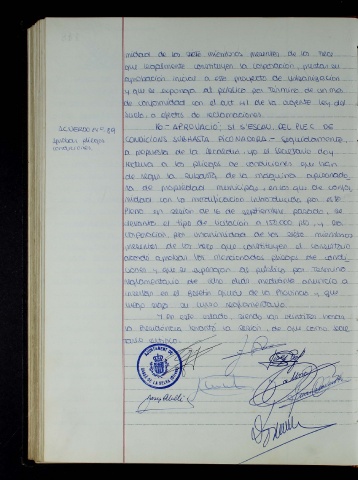 midad de los siete miembros presentes de los trece
que legalmente constituyen la Corporación, prestar su
aprobación inicial a este proyecto de urbanización
y que se exponga al público por término de un mes
de conformidad con el art. 41 de la vigente Ley del
Suelo a efectos de reclamaciones.
ACUERDO Nº 89
10 - APROVACIÓ, SI S'ESCAU, DEL PLEC DE
CONDICIONS SUBHASTA PICONADORA - Seguidamente
a propuesta de la Alcaldía yo el Secretario doy
lectura a los pliegos de condiciones que han
de seguir la subasta de la máquina apisonadora
de propiedad municipal, en los que de confor
midad con la modificación introducida por este
Pleno en sesión de 16 de septiembre pasado, se
el tipo de licitación a
Corporación, por unanimidad de los siete miembros
presentes de los trece que constituyen el consistorio
acordó aprobar los mencionados pliegos de condi
ciones y que se expongan al público por término
reglamentario de ocho días mediante anuncio a
insertar en el Boletín Oficial de la Provincia y que
luego siga su curso reglamentario.
Y en este estado, siendo las veintitres horas,
la Presidencia levantó la sesión, de que como Secre
tario certifico.
AJUNTAMENT DE